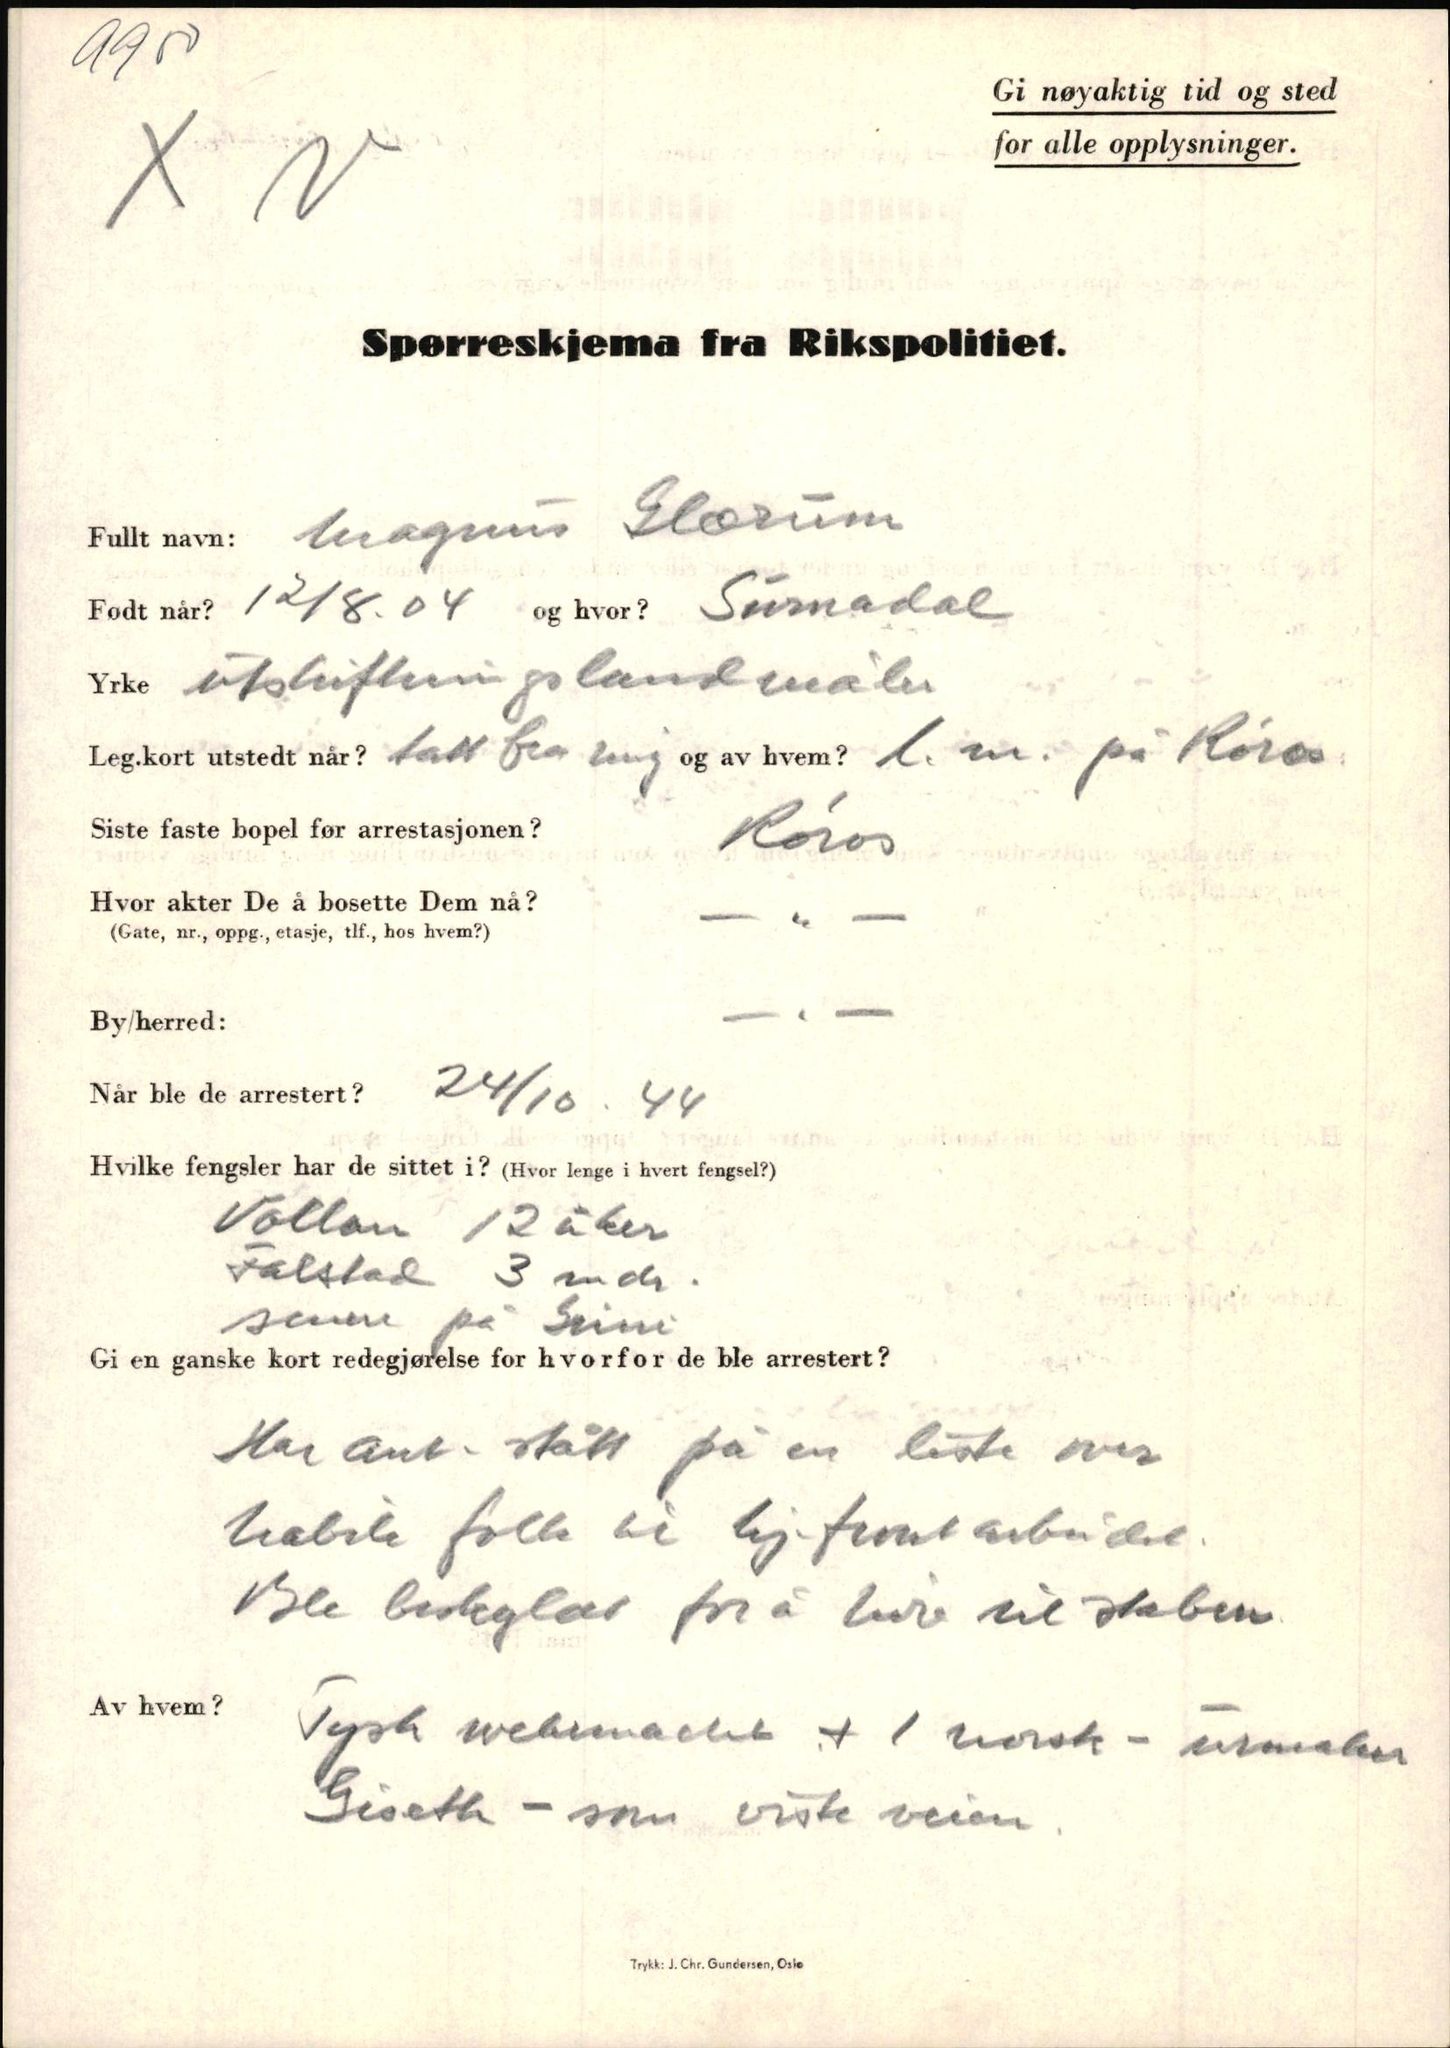 9950
X V
Gi nøyaktig tid og sted
for alle opplysninger.
Spørreskjema fra Rikspolitiet.
Fullt navn: Magnus Glærum
Født når? 12/8.04 og hvor? Surnadal
Yrke utskiftningslandmåler
Leg.kort utstedt når? tatt fra mig og av hvem? l.m. på Røros.
Siste faste bopel før arrestasjonen? Røros
Hvor akter De å bosette Dem nå? — " —
(Gate, nr., oppg., etasje, tlf., hos hvem?)
By/herred: — " —
Når ble de arrestert? 24/10.44
Hvilke fengsler har de sittet i? (Hvor lenge i hvert fengsel?)
Vollan 12 uker
Falstad 3 mdr.
senere på Grini
Gi en ganske kort redegjørelse for hvorfor de ble arrestert?
Har ant. stått på en liste over
habile folk til hj.frontarbeidet.
Ble beskyldt for å høre til staben.
Av hvem? Tysk wehrmacht + 1 norsk - urmaker
Giseth - som viste veien.
Trykk: J. Chr. Gundersen, Oslo